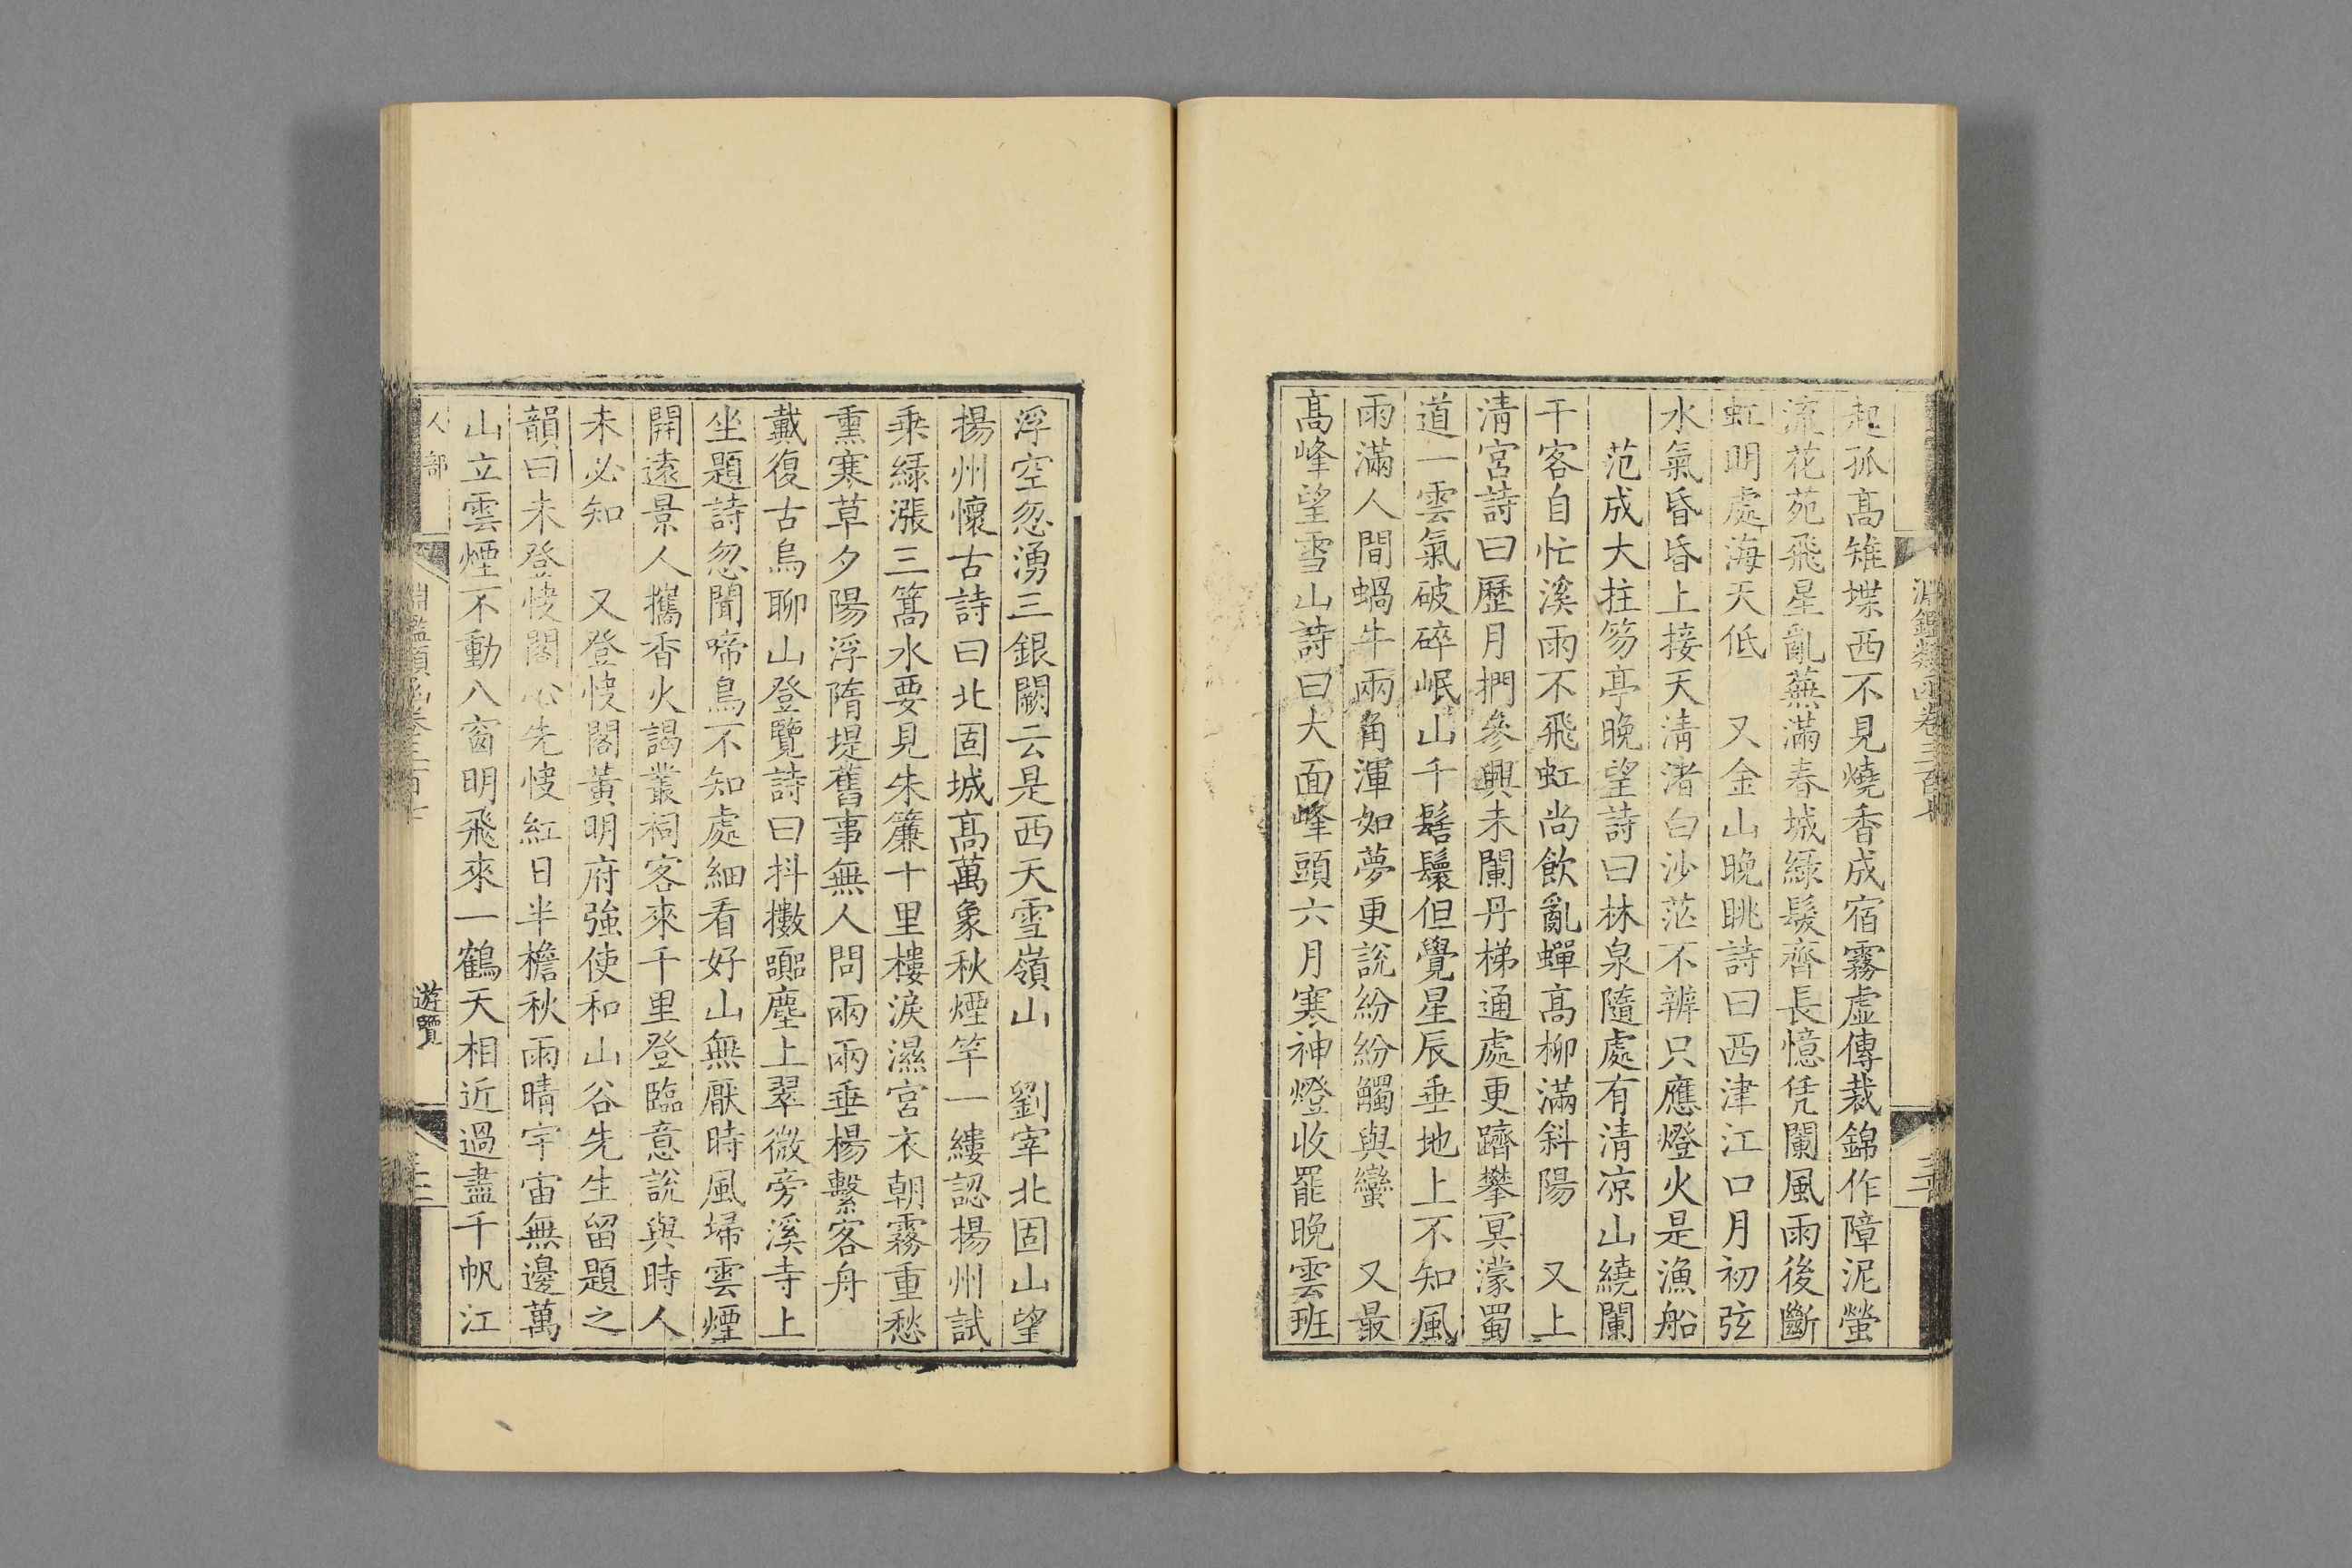 起孤高雉堞西不見燒香成宿霧虛傳裁錦作障泥螢
流花苑飛星亂蕪滿春城綠髮齊長憶凭闌風雨後斷
虹明處海天低　又金山晚眺詩曰西津江口月初弦
水氣昏昏上接天淸渚白沙茫不辨只應燈火是漁船
范成大拄笏亭晚望詩曰林泉隨處有淸凉山繞闌
干客自忙溪雨不飛虹尚飲亂蟬高柳滿斜陽　又上
淸宮詩曰歷月捫參興未闌丹梯通處更躋攀冥濛蜀
道一雲氣破碎岷山千髻鬟但覺星辰垂地上不知風
雨滿人間蝸牛兩角渾如夢更說紛紛觸與蠻　又最
高峰望雪山詩曰大面峰頭六月寒神燈收罷晚雲班
浮空忽湧三銀闕云是西天雪嶺山　劉宰北固山望
揚州懷古詩曰北固城高萬象秋煙竿一縷認揚州試
乘綠漲三篙水要見朱簾十里樓淚濕宮衣朝霧重愁
熏寒草夕陽浮隋堤舊事無人問兩兩垂楊繫客舟
戴復古烏聊山登覽詩曰抖擻驅塵上翠微旁溪寺上
坐題詩忽聞啼鳥不知處細看好山無厭時風埽雲煙
開遠景人攜香火謁叢祠客來千里登臨意說與時人
未必知　又登快閣黃明府強使和山谷先生留題之
韻曰未登快閣心先快紅日半檐秋雨晴宇宙無邊萬
山立雲煙不動八窗明飛來一鶴天相近過盡千帆江
人部
淵鑑類函卷三百
遊覽